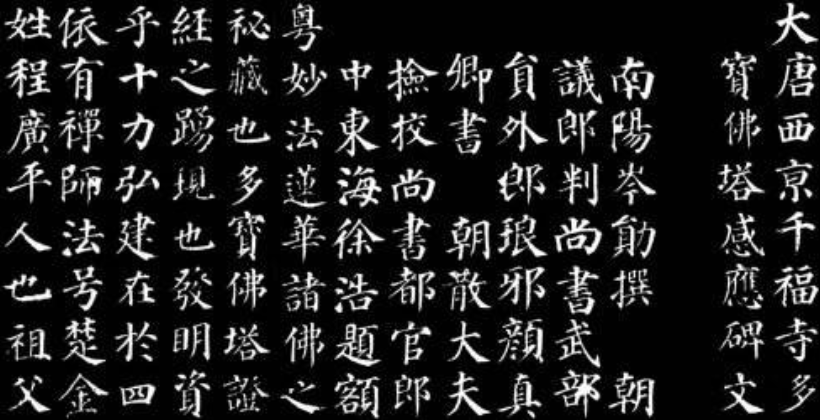 大唐西亰千福寺多
寶佛塔感應碑文
南陽岑勛撰 朝
議郎判尚書武部
貟外郎琅邪顏真
卿書 朝散大夫
撿挍尚書都官郎
中東海徐浩題額
粵妙法蓮華諸佛之
祕藏也多寶佛塔證
經之踴現也發明資
乎十力弘建在於四
依有禪師法号楚金
姓程廣平人也祖父